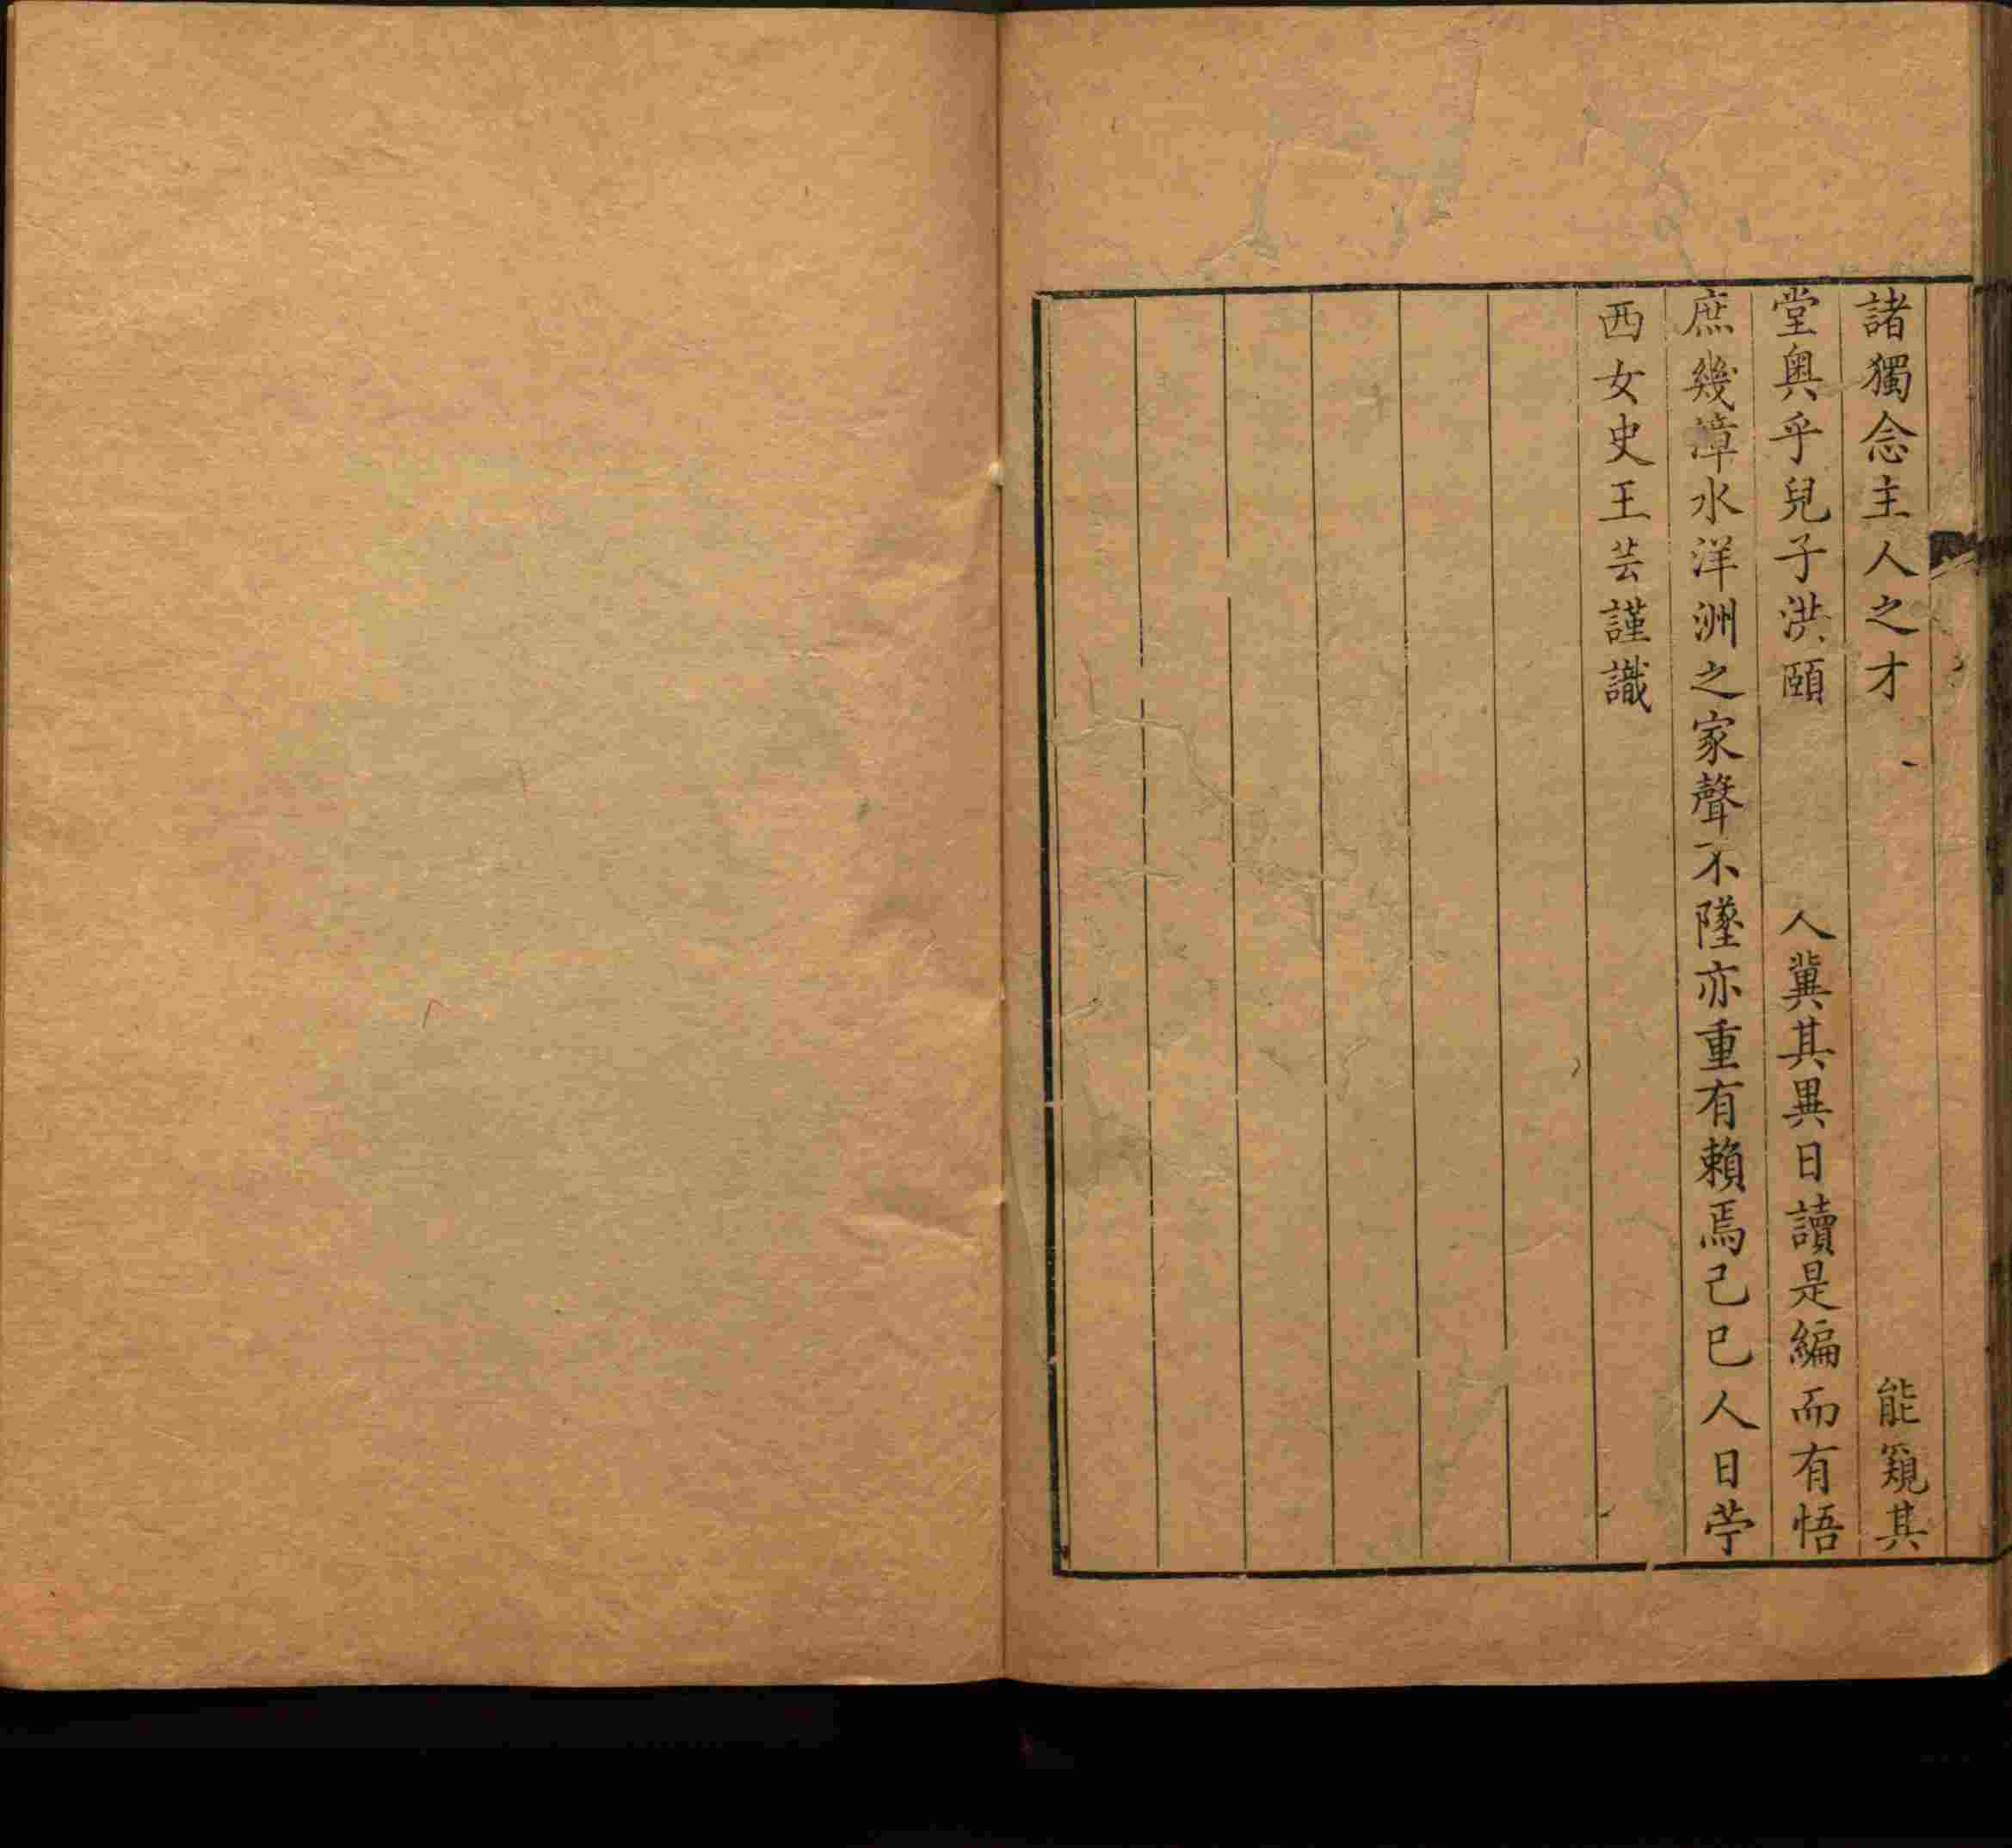 諸獨念主人之才 能窺其
堂奧乎兒子洪頤 人冀其異日讀是編而有悟
庶幾漳水洋洲之家聲不墜亦重有賴焉己巳人日苧
西女史王芸謹識